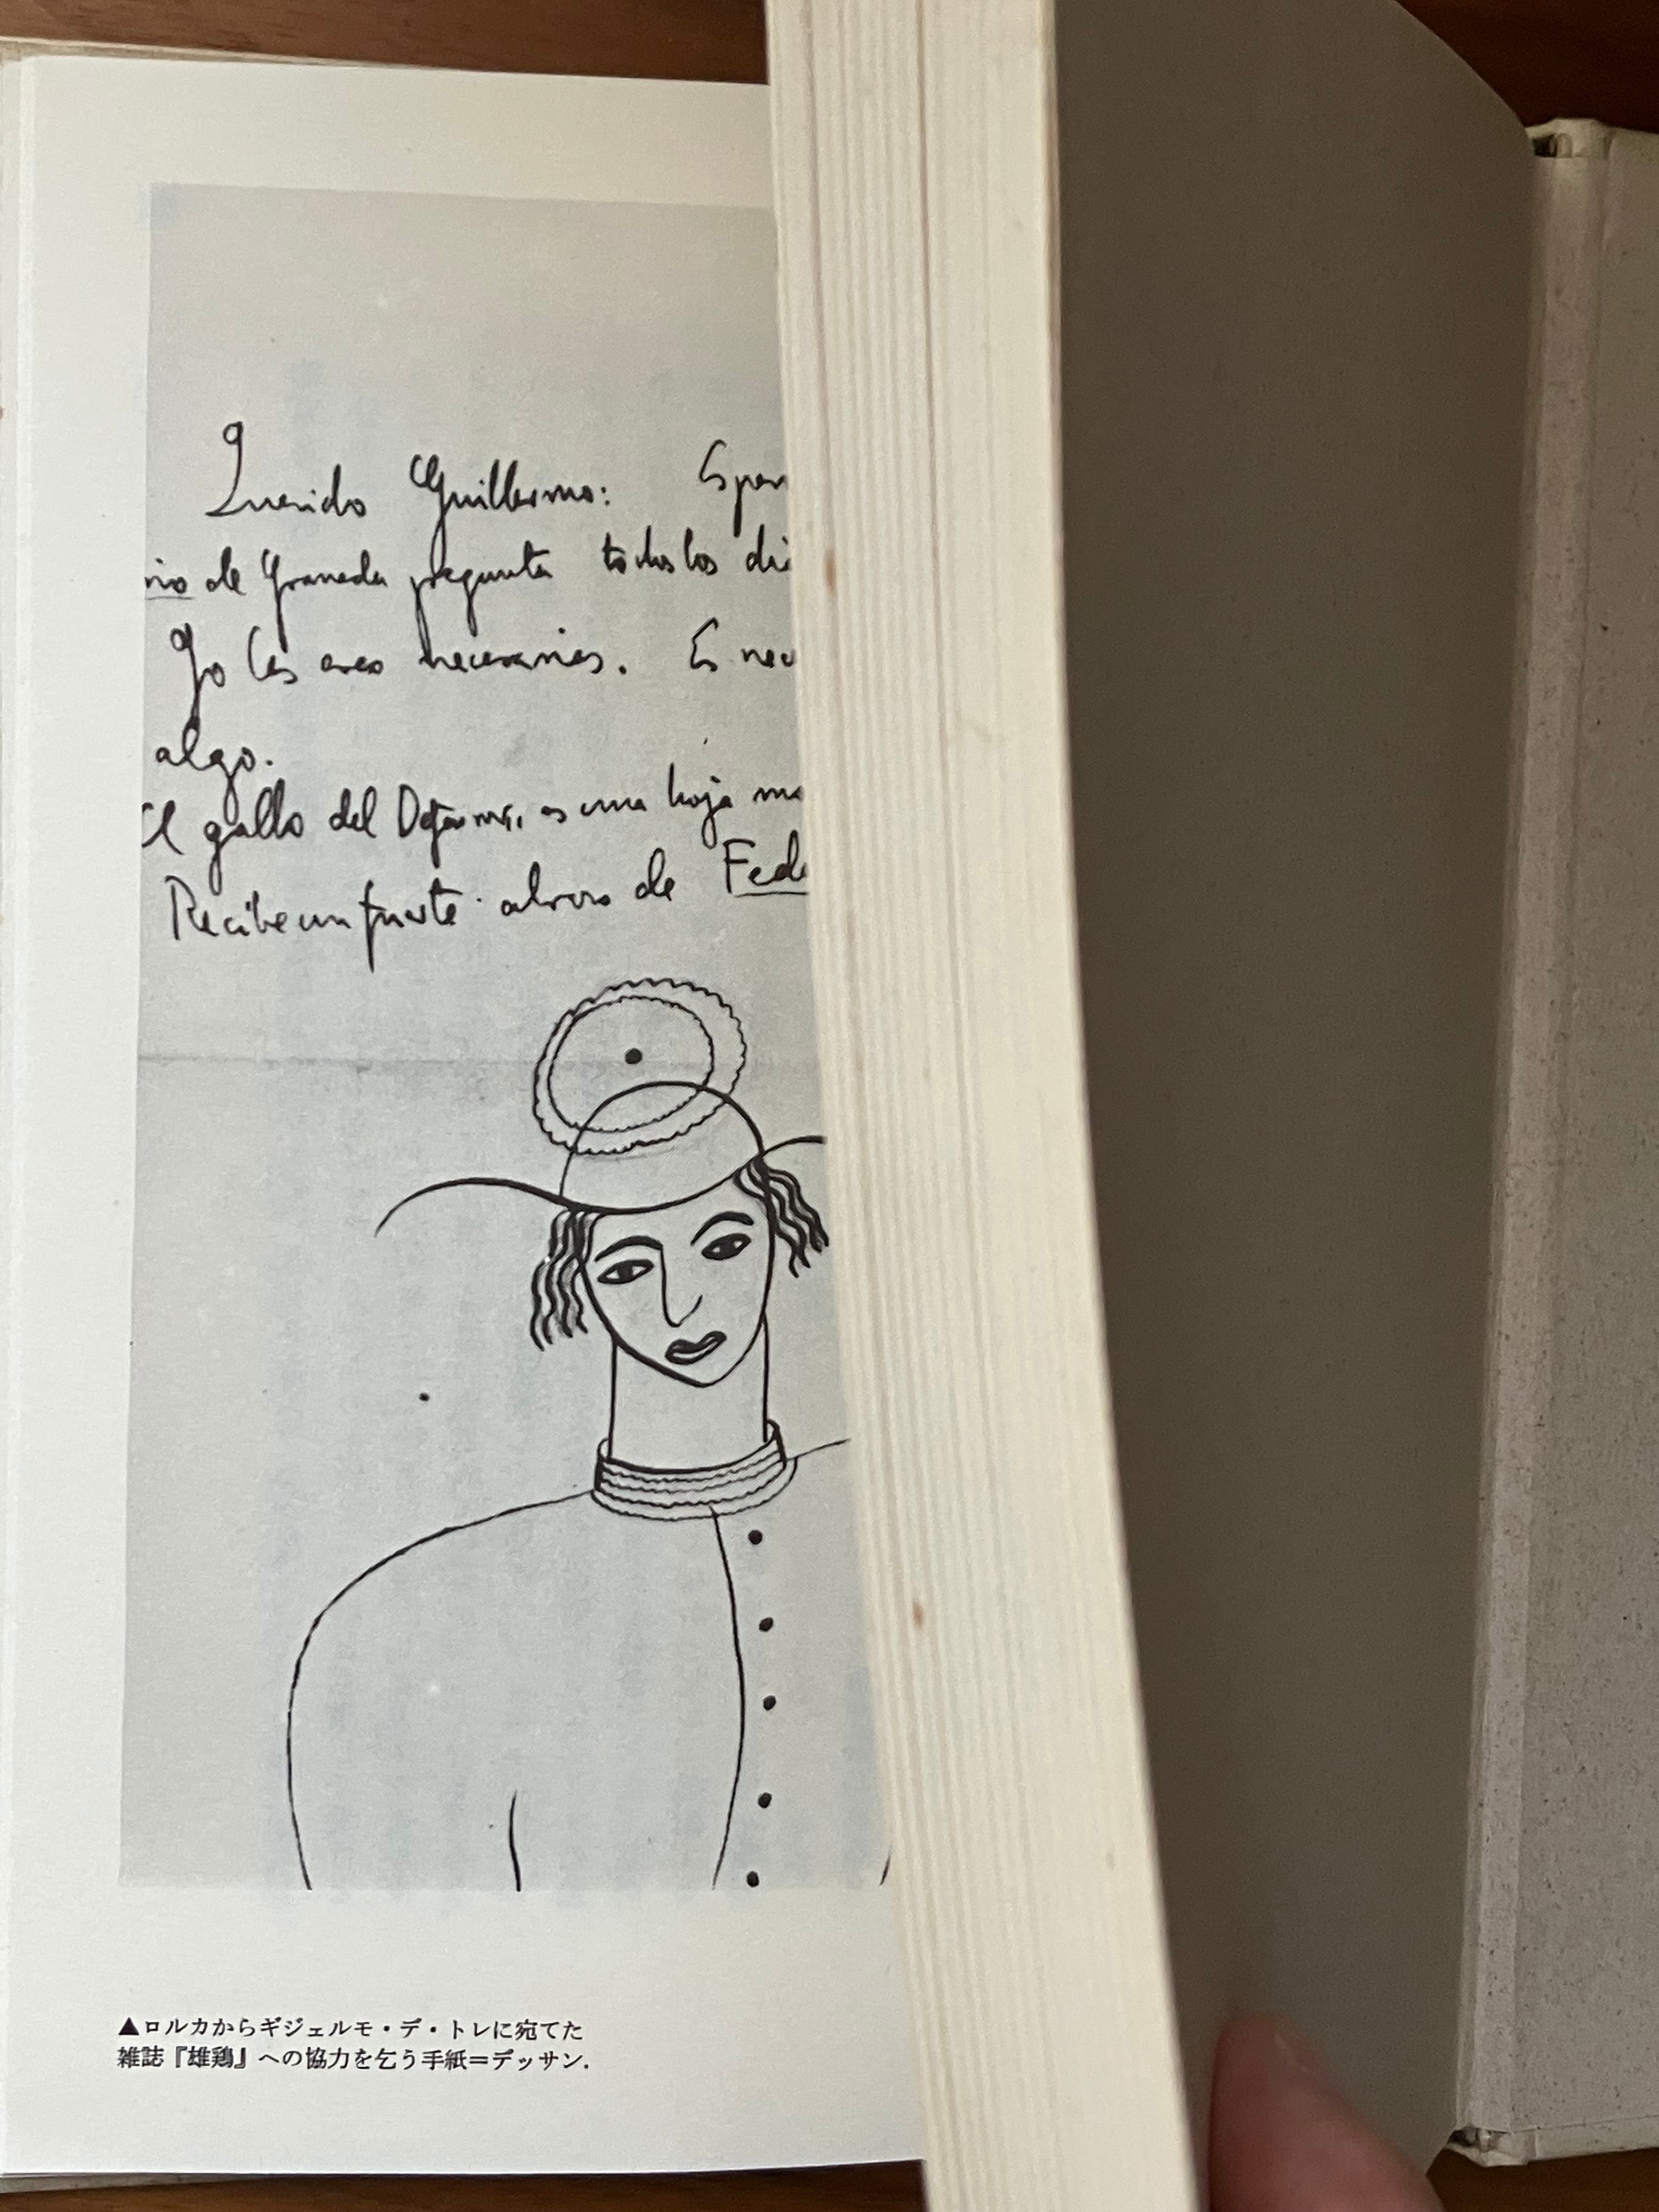 Querido Guillermo: Esper
rio de Granada pregunta todos los di
Yo las creo necesarias. Es nec
algo.
El gallo del Defensor, es una hoja ma
Recibe un fuerte abrazo de Fede
▲ロルカからギジェルモ・デ・トレに宛てた
雑誌『雄鶏』への協力を乞う手紙=デッサン.